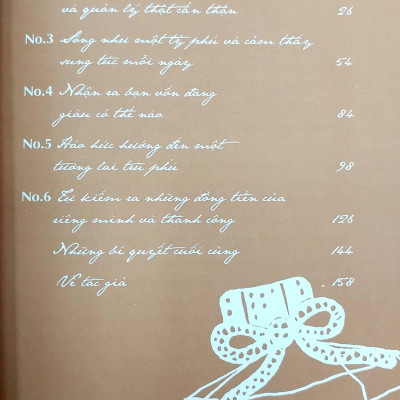 và quản lý thật cẩn thận 26
No.3 Sống như một tỷ phú và cảm thấy
sung túc mỗi ngày 54
No.4 Nhận ra bạn vốn đang
giàu có thế nào 84
No.5 Háo hức hướng đến một
tương lai trù phú 98
No.6 Tự kiếm ra những đồng tiền của
riêng mình và thành công 126
Những bí quyết cuối cùng 144
Về tác giả 158